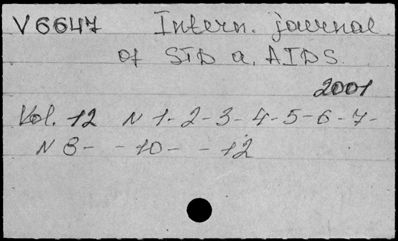 V 6647 Intern. journal
of STD a. AIDS
2001
Vol. 12 N 1-2-3-4-5-6-7-
N 8- -10- -12